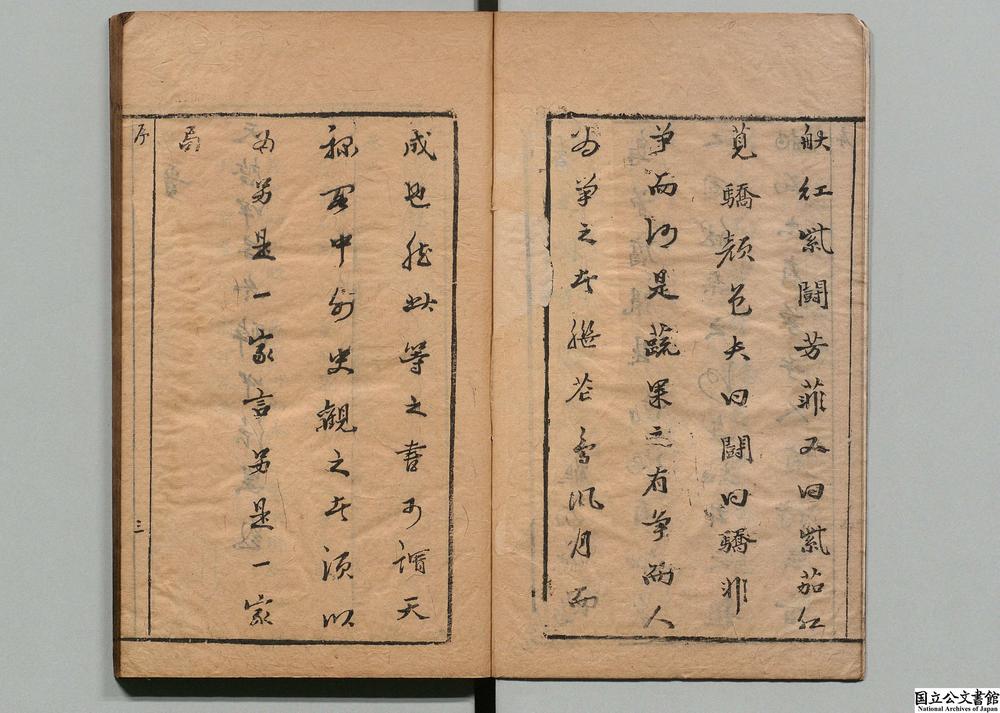 般紅紫闘芳菲又曰紫茄紅
莧驕顏色夫曰闘曰驕非
爭而何是蔬果之有爭而人
為爭之者繼花鳥風月而
成也然此等之書可謂天
祿閣中外史觀之者須以
為另是一家言另是一家
局
序 三
国立公文書館
National Archives of Japan